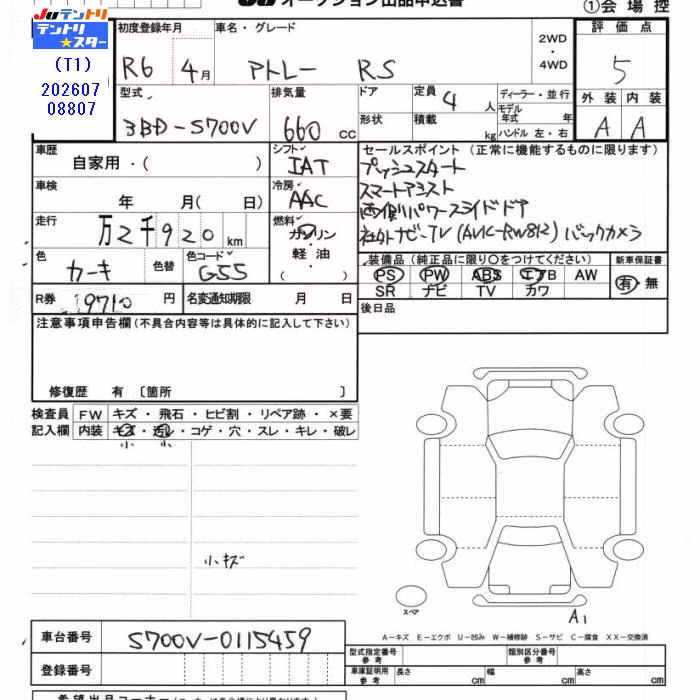 JUテントリ オークション出品申込書 ①会場控
テントリ★スター
(T1)
202607
08807
初度登録年月 車名・グレード 2WD・4WD 評価点
R6 4月 アトレー RS 5
型式 排気量 ドア 定員 4人 ディーラー・並行 外装 内装
モデル年式 年
3BD-S700V 660cc 形状 積載 kg ハンドル 左・右 A A
車歴 自家用・( ) シフト IAT セールスポイント (正常に機能するものに限ります)
プッシュスタート
車検 年 月( 日) 冷房 AAC スマートアシスト
両側パワースライドドア
走行 万2千920km 燃料 ガソリン・軽油・( ) 社外ナビ-TV (AVIC-RW812) バックカメラ
色 カーキ 色替 色コード G55 装備品 (純正品に限り〇をつけてください) 新車保証書
PS PW ABS エアB AW 有・無
SR ナビ TV カワ
R券 9710円 名変通知期限 月 日 後日品
注意事項申告欄 (不具合内容等は具体的に記入して下さい)
修復歴 有 〔箇所 〕
検査員 FW キズ・飛石・ヒビ割・リペア跡・×要
記入欄 内装 キズ・汚レ・コゲ・穴・スレ・キレ・破レ
小 小
小キズ
スペア A1
A-キズ E-エクボ U-凹み W-補修跡 S-サビ C-腐食 XX-交換済
車台番号 S700V-0115459
型式指定番号 参考 類別区分番号 参考
登録番号 車庫証明用 参考 長さ cm 幅 cm 高さ cm